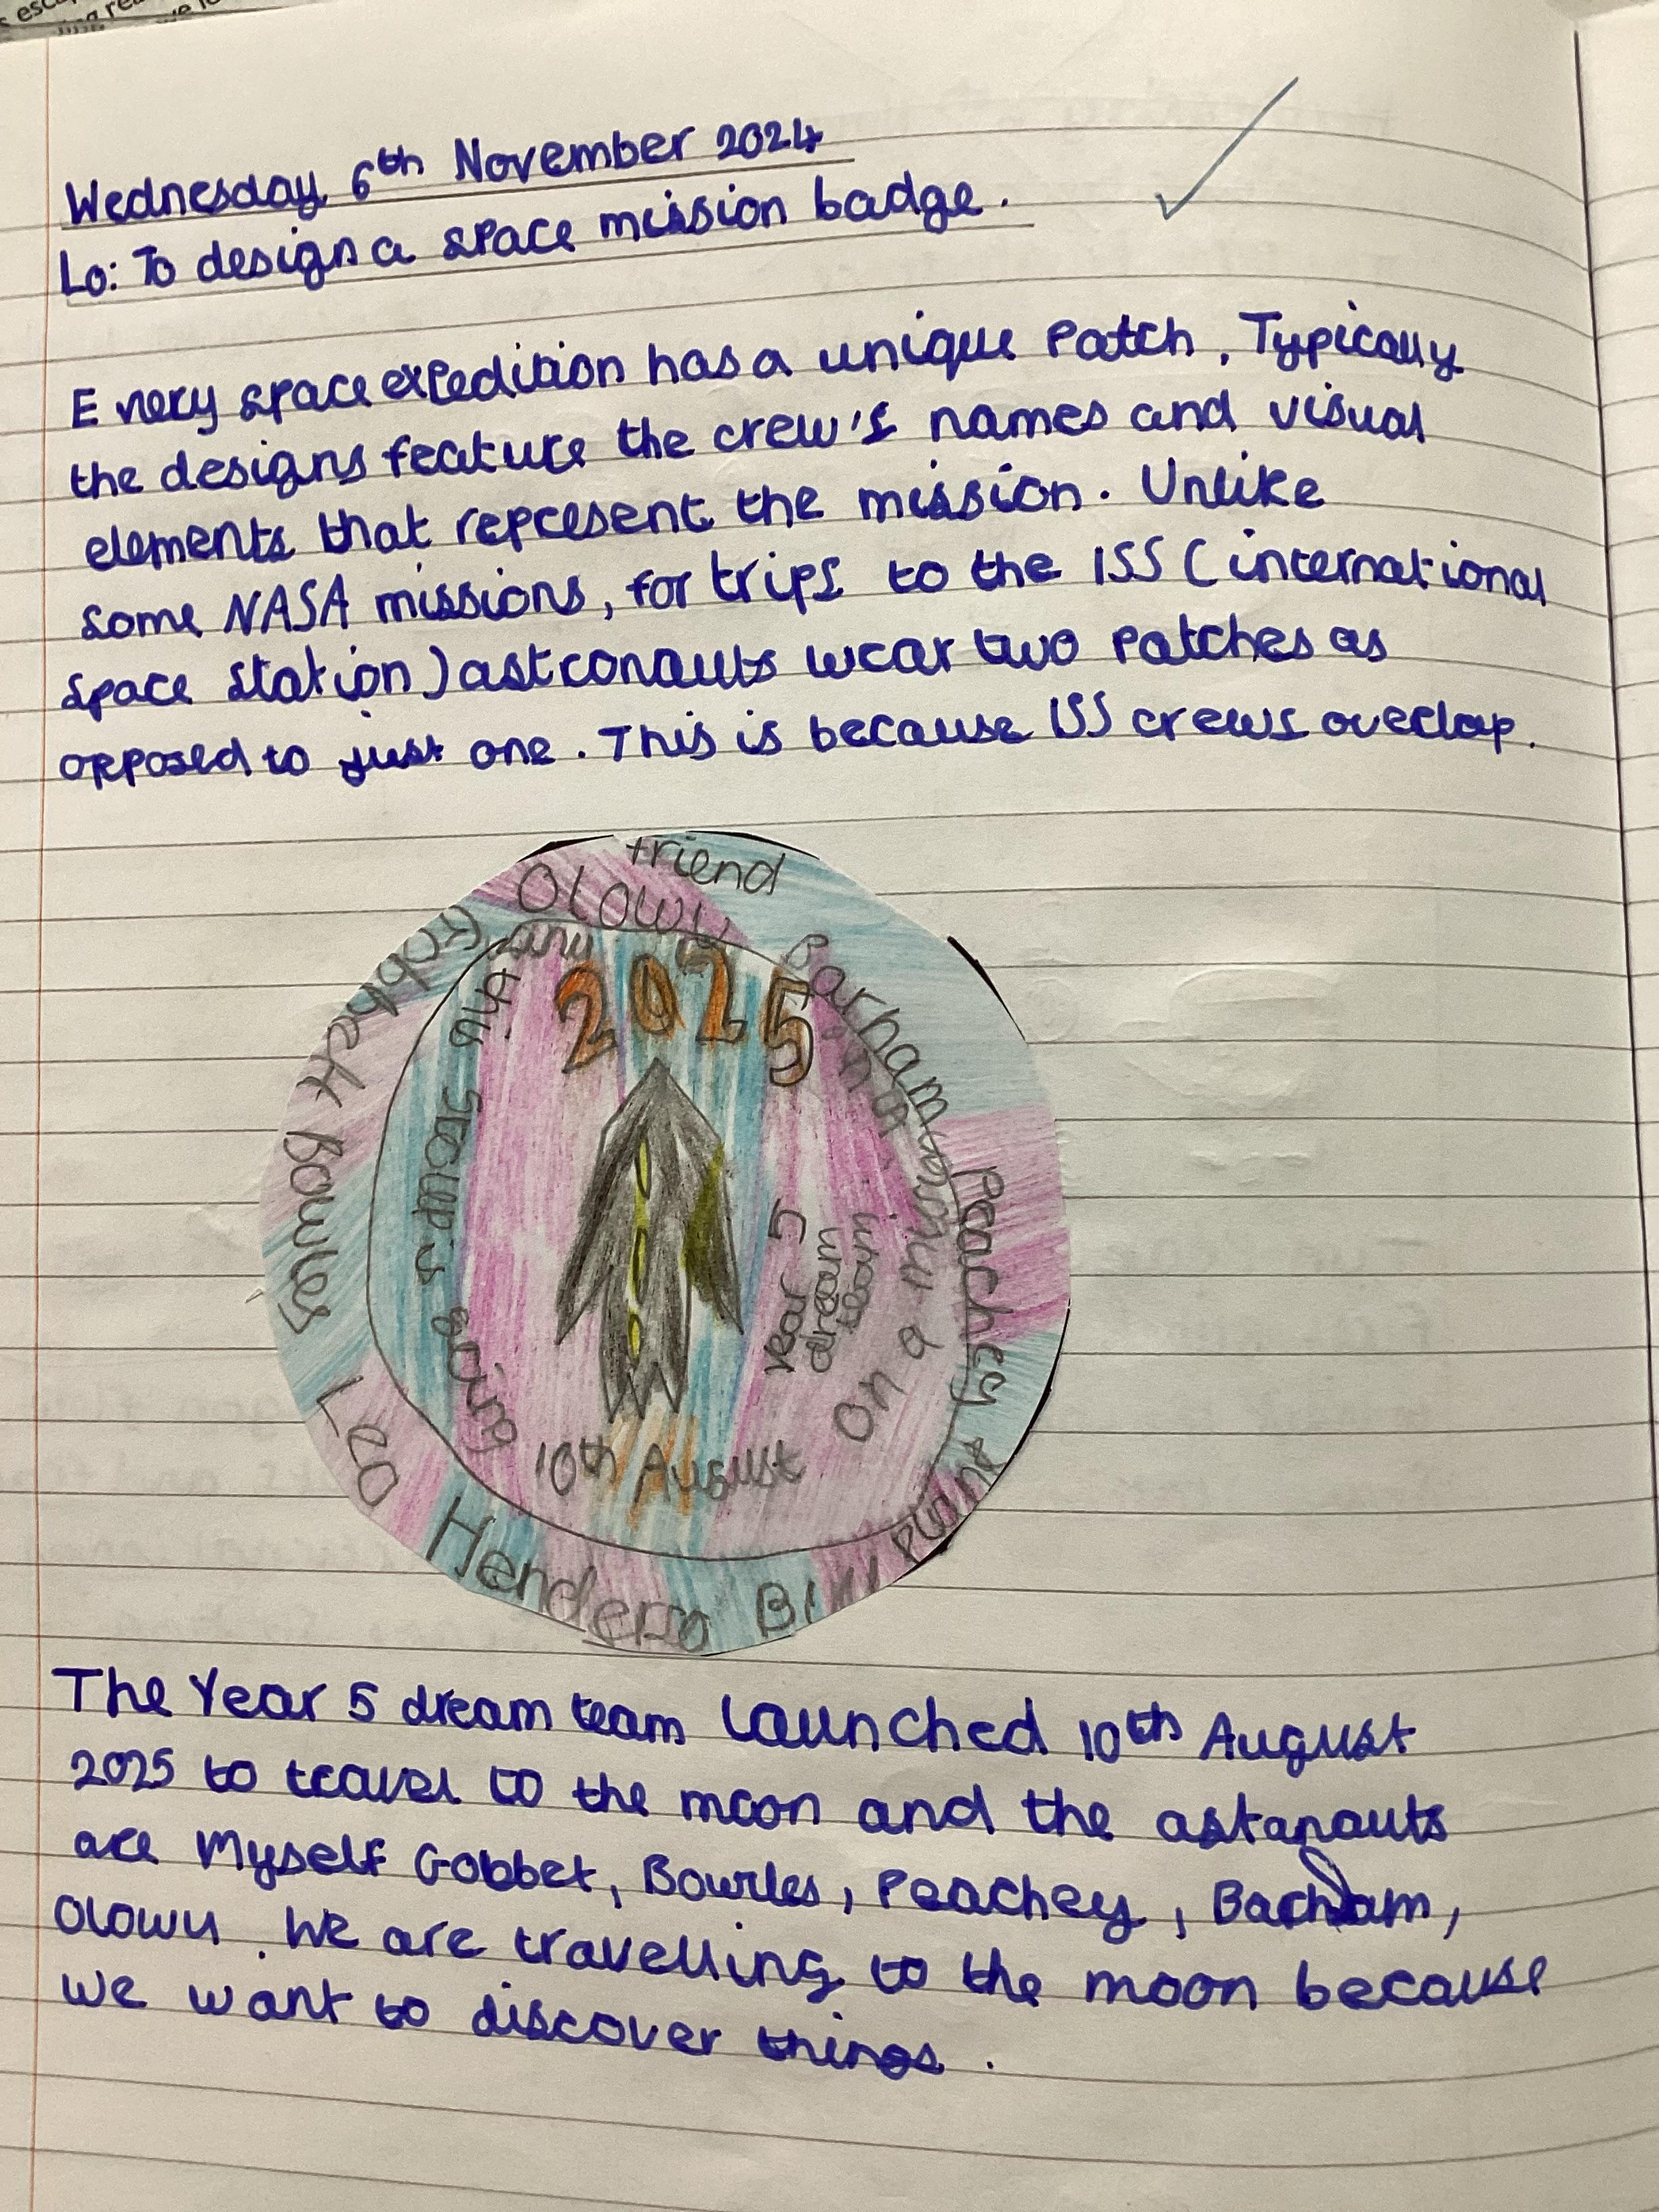 Wednesday 6th November 2024
Lo: To design a space mission badge.
Every space expedition has a unique Patch, Typically
the designs feature the crew's names and visual
elements that represent the mission. Unlike
some NASA missions, for trips to the ISS (international
space station) astronauts wear two patches as
opposed to just one. This is because ISS crews overlap.
friend
Olowu
Barnham
Peachey
Bill
Henderso
Leo
Bowles
2025
who
stom's
going
On a
Year 5
dream
team
10th August
The Year 5 dream team launched 10th August
2025 to travel to the moon and the astanauts
are Myself Gobbet, Bowles, Peachey, Barham,
Olowu. We are travelling to the moon because
we want to discover things.